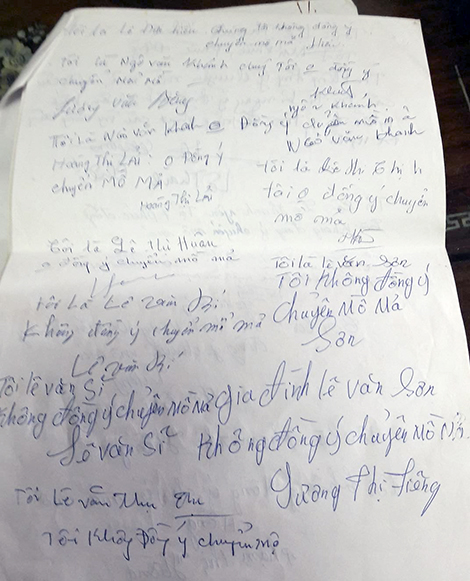 Tôi là Lê Đức Hiền Chúng Tôi không đồng ý
chuyển mồ mả
Tôi là Ngô văn Khánh chúng Tôi o đồng ý
chuyển mồ mả
Ngô văn Khanh
Tôi là văn khanh o Đồng ý chuyển mồ mả
Hoàng Thị Lài: o Đồng ý
chuyển MỒ MẢ
Hoàng Thị Lài
Tôi là Thị Thịnh
tôi o đồng ý chuyển
mồ mả
Tôi là Lê Thị Huân
o đồng ý chuyển mồ mả
Tôi là lê văn Sơn
Tôi Không đồng ý
chuyển Mồ Mả
Sơn
Tôi là Lê văn Bí
Không đồng ý chuyển mồ mả
Lê văn Bí
Tôi lê văn Sĩ
Không đồng ý chuyển Mồ Mả
Lê văn Sĩ
Gia đình lê văn Sơn
Không đồng ý chuyển Mồ Mả
Dương Thị Tiếng
Tôi Lê văn Thu Thu
Tôi Không Đồng ý chuyển mộ